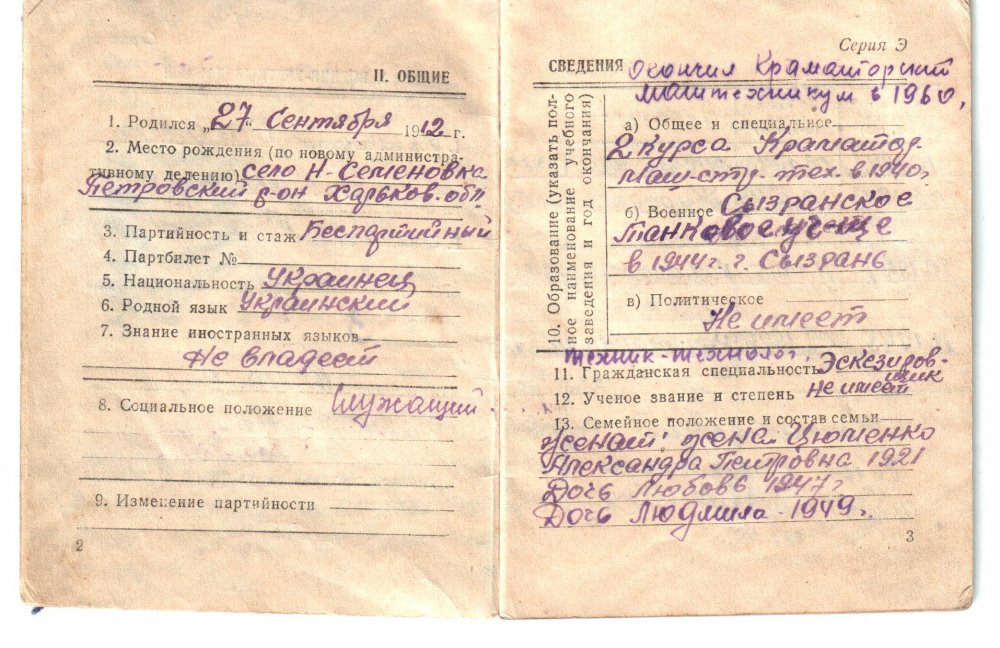 II. ОБЩИЕ
1. Родился „27“ Сентября 1912 г.
2. Место рождения (по новому администра-
тивному делению) село Н-Семеновка
Петровский р-он Харьков. обл
3. Партийность и стаж Беспартийный
4. Партбилет №
5. Национальность Украинец
6. Родной язык Украинский
7. Знание иностранных языков
Не владеет
8. Социальное положение Служащий
9. Изменение партийности
2
Серия Э
СВЕДЕНИЯ Окончил Краматорский
Маштехникум в 1960,
10. Образование (указать пол-
ное наименование учебного
заведения и год окончания)
а) Общее и специальное
2 курса Краматор.
Маш-стр. тех. в 1940г
б) Военное Сызранское
Танковое уч-ще
в 1944г. г. Сызрань
в) Политическое
Не имеет
техник-технолог.
11. Гражданская специальность Эскезиров-
щик
12. Ученое звание и степень не имеет
13. Семейное положение и состав семьи
женат! жена
Александра Петровна 1921
Дочь Любовь 1947г
Дочь Людмила - 1949г.
3